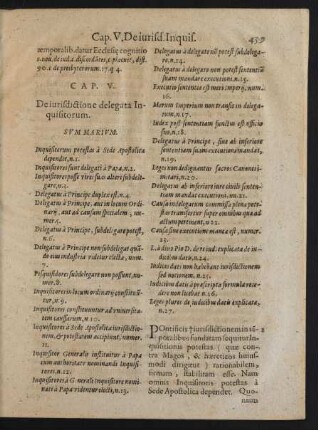 Cap. V. De iurisd. Inquis. 439
temporalib. datur Ecclesię cognitio
CAP. V.
De iurisdictione delegata In-
quisitorum.
SVMMARIVM.
Inquisitorum potestas à Sede Apostolica
dependet, n.1.
Inquisitores sunt delegati à Papa, n.2.
Inquisitores possunt vices suas alteri subdele-
gare, n.3.
Delegatus à Principe duplex est, n.4.
Delegatus à Principe, aut in locum Ordi-
narij, aut ad causam specialem, nu-
mer. 5.
Delegatus à Principe, subdelegare potest,
n.6.
Delegatus à Principe non subdelegat quan-
do eius industria videtur electa, nume-
ro.7.
Pesquisidores subdelegare non possunt, nu-
mer. 8.
Inquisitores in locum ordinarij constituū-
tur, n.9.
Inquisitores constituuntur ad vniuersita-
tem caussarum, n.10.
Inquisitores à Sede Apostolica iurisdictio-
nem, & potestatem accipiunt, nume-
ro.11.
Inquisitor Generalis instituitur à Papa
cum auctoritate nominandi Inquisi-
tores, n.12.
Inquisitores à Generali Inquisitore nomi-
nati à Papa videntur electi, n.13.
Delegatus à delegato nō potest subdelega-
re, n.14.
Delegatus à delegato non potest sententiā
suam mandare executioni, n.15.
Executio sententiæ est meri imperij, num.
16.
Merum Imperium non transit in delega-
tum, n.17.
Iudex post sententiam functus est officio
suo, n.18.
Delegatus à Principe, siue ab inferiore
sententiam suam executioni mandat,
n.19.
Leges non dedignantur sacros Canones i-
mitari, n.20.
Delegatus ab inferiore in re ciuili senten-
tiam mandat executioni, n.21.
Causa alicui commissa plena iurisdictio &
potestas transfertur super omnibus quæ ad
causam pertinent, n.22.
Causa sine executione manca est, numer.
23.
Iudices dati non habebant iurisdictionem
sed notionem, n.25.
Iudicibus datis à præscripta formula rece-
dere non licebat, n.26.
Leges plures de iudicibus datis explicatæ,
n.27.
Pontificis † iurisdictionem in tē-
poralibus fundatam sequitur In-
quisitionis potestas (quæ con-
tra Magos, & hæreticos huius-
modi dirigitur) rationabiliter fir-
mam, stabilitam esse. Nam
omnis Inquisitionis potestas à
Sede Apostolica dependet. Quo-